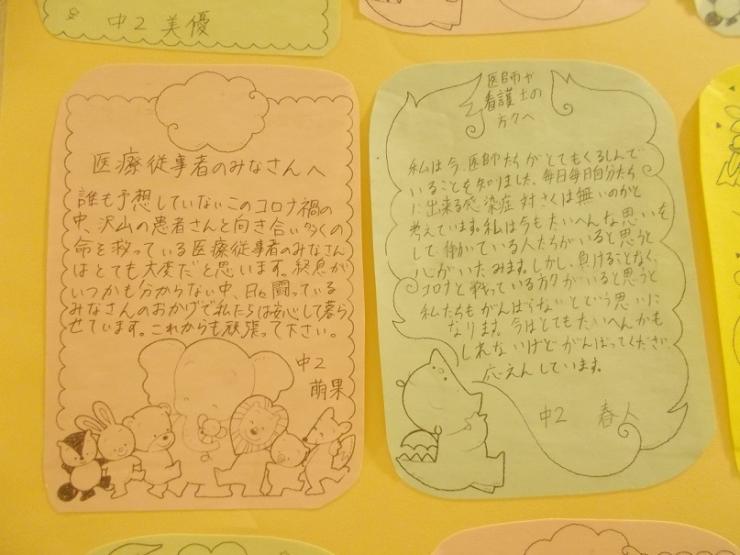 中2 美優
医療従事者のみなさんへ
誰も予想していないこのコロナ禍の
中、沢山の患者さんと向き合い多くの
命を救っている医療従事者のみなさん
はとても大変だと思います。終息が
いつかも分からない中、日々闘っている
みなさんのおかげで私たちは安心して暮ら
せています。これからも頑張って下さい。
中2
萌果
医師や
看護士の
方々へ
私は今、医師たちがとてもくるしんで
いることを知りました。毎日毎日自分たち
に出来る感染症対さくは無いのかと
考えています。私は今もたいへんな思いを
して働いている人たちがいると思うと
心がいたみます。しかし、負けることなく、
コロナと戦っている方々がいると思うと
私たちもがんばらないとという思いに
なります。今はとてもたいへんかも
しれないけどがんばってください
応えんしています。
中2 春人